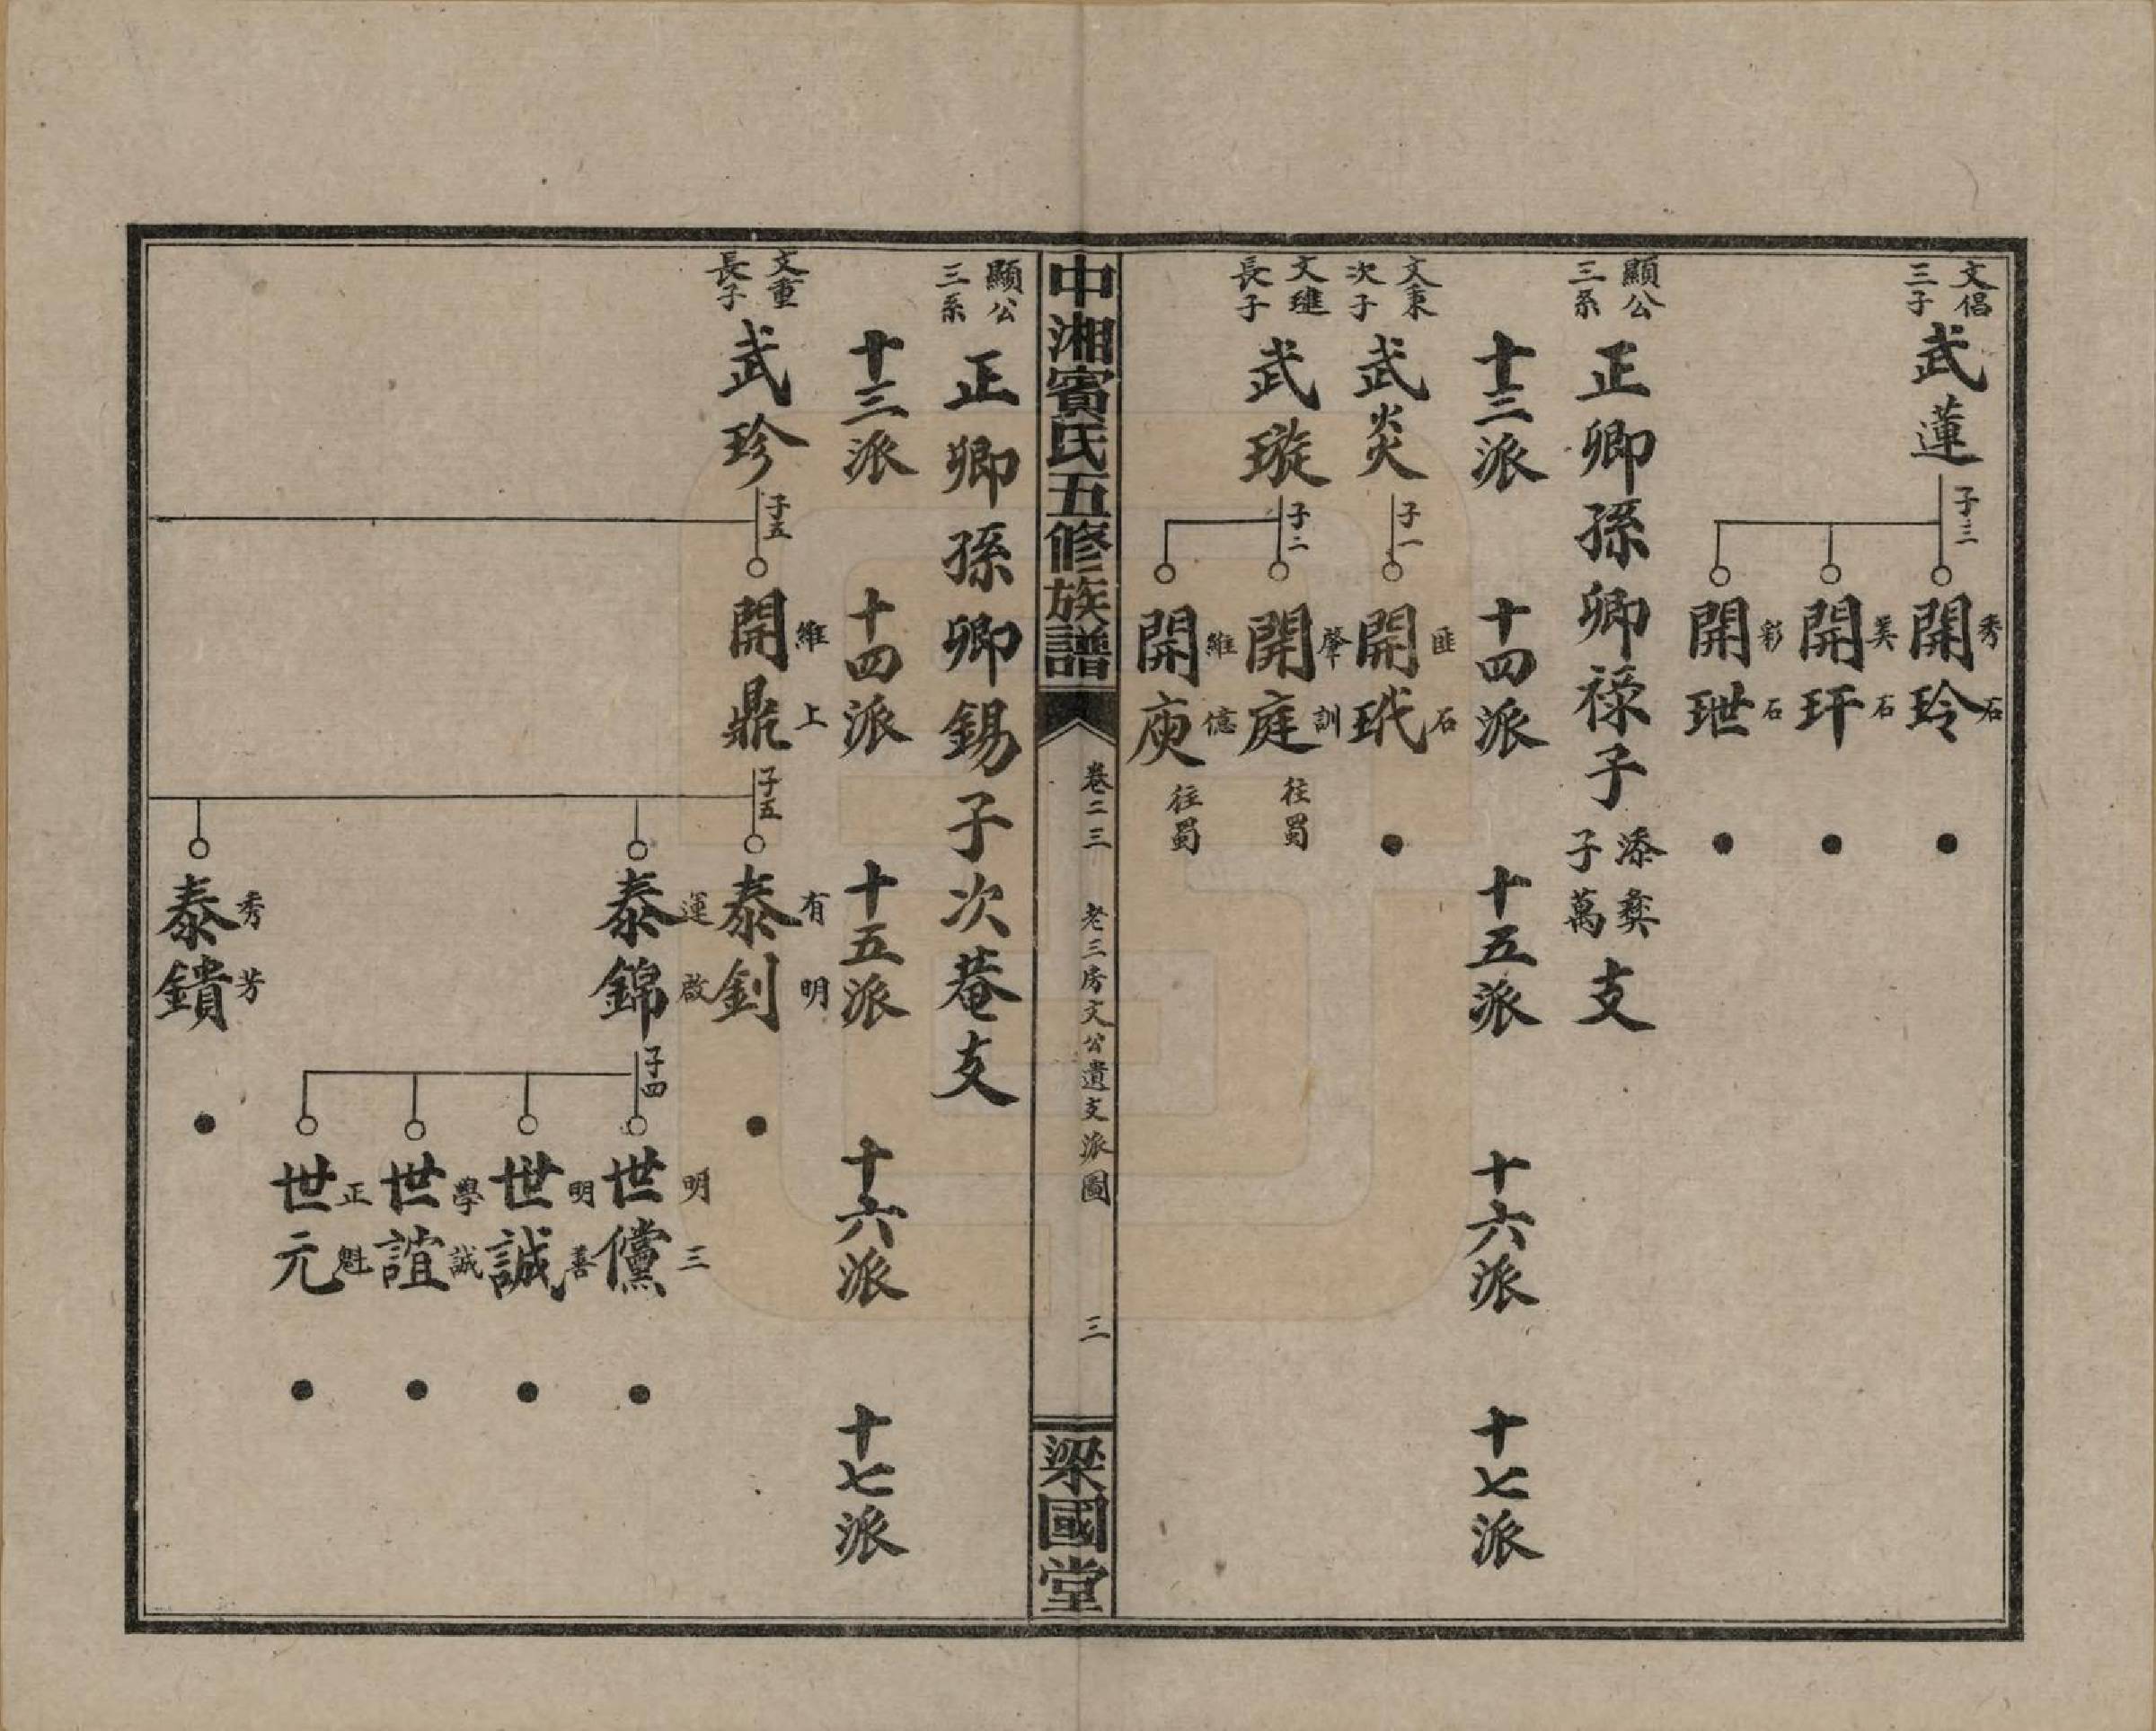 文倡
三子
武蓮
子三
開玲
秀石
開玕
美石
開玴
彩石
顯公
三系
正卿孫卿祿子
添彝
子萬
支
十三派
十四派
十五派
十六派
十七派
文秉
次子
武炎
子一
開玳
匪石
文璡
長子
武璇
子二
開庭
聲訓
往蜀
開庾
維億
往蜀
中湘賓氏五修族譜
卷二三
老三房文公遺支派圖
三
梁國堂
顯公
三系
正卿孫卿錫子次菴支
十三派
十四派
十五派
十六派
十七派
文重
長子
武珍
子五
開鼎
維上
子五
泰釗
有明
泰錦
運啟
子四
世儻
明三
世誠
明善
世誼
學誠
世元
正魁
泰鐀
秀芳